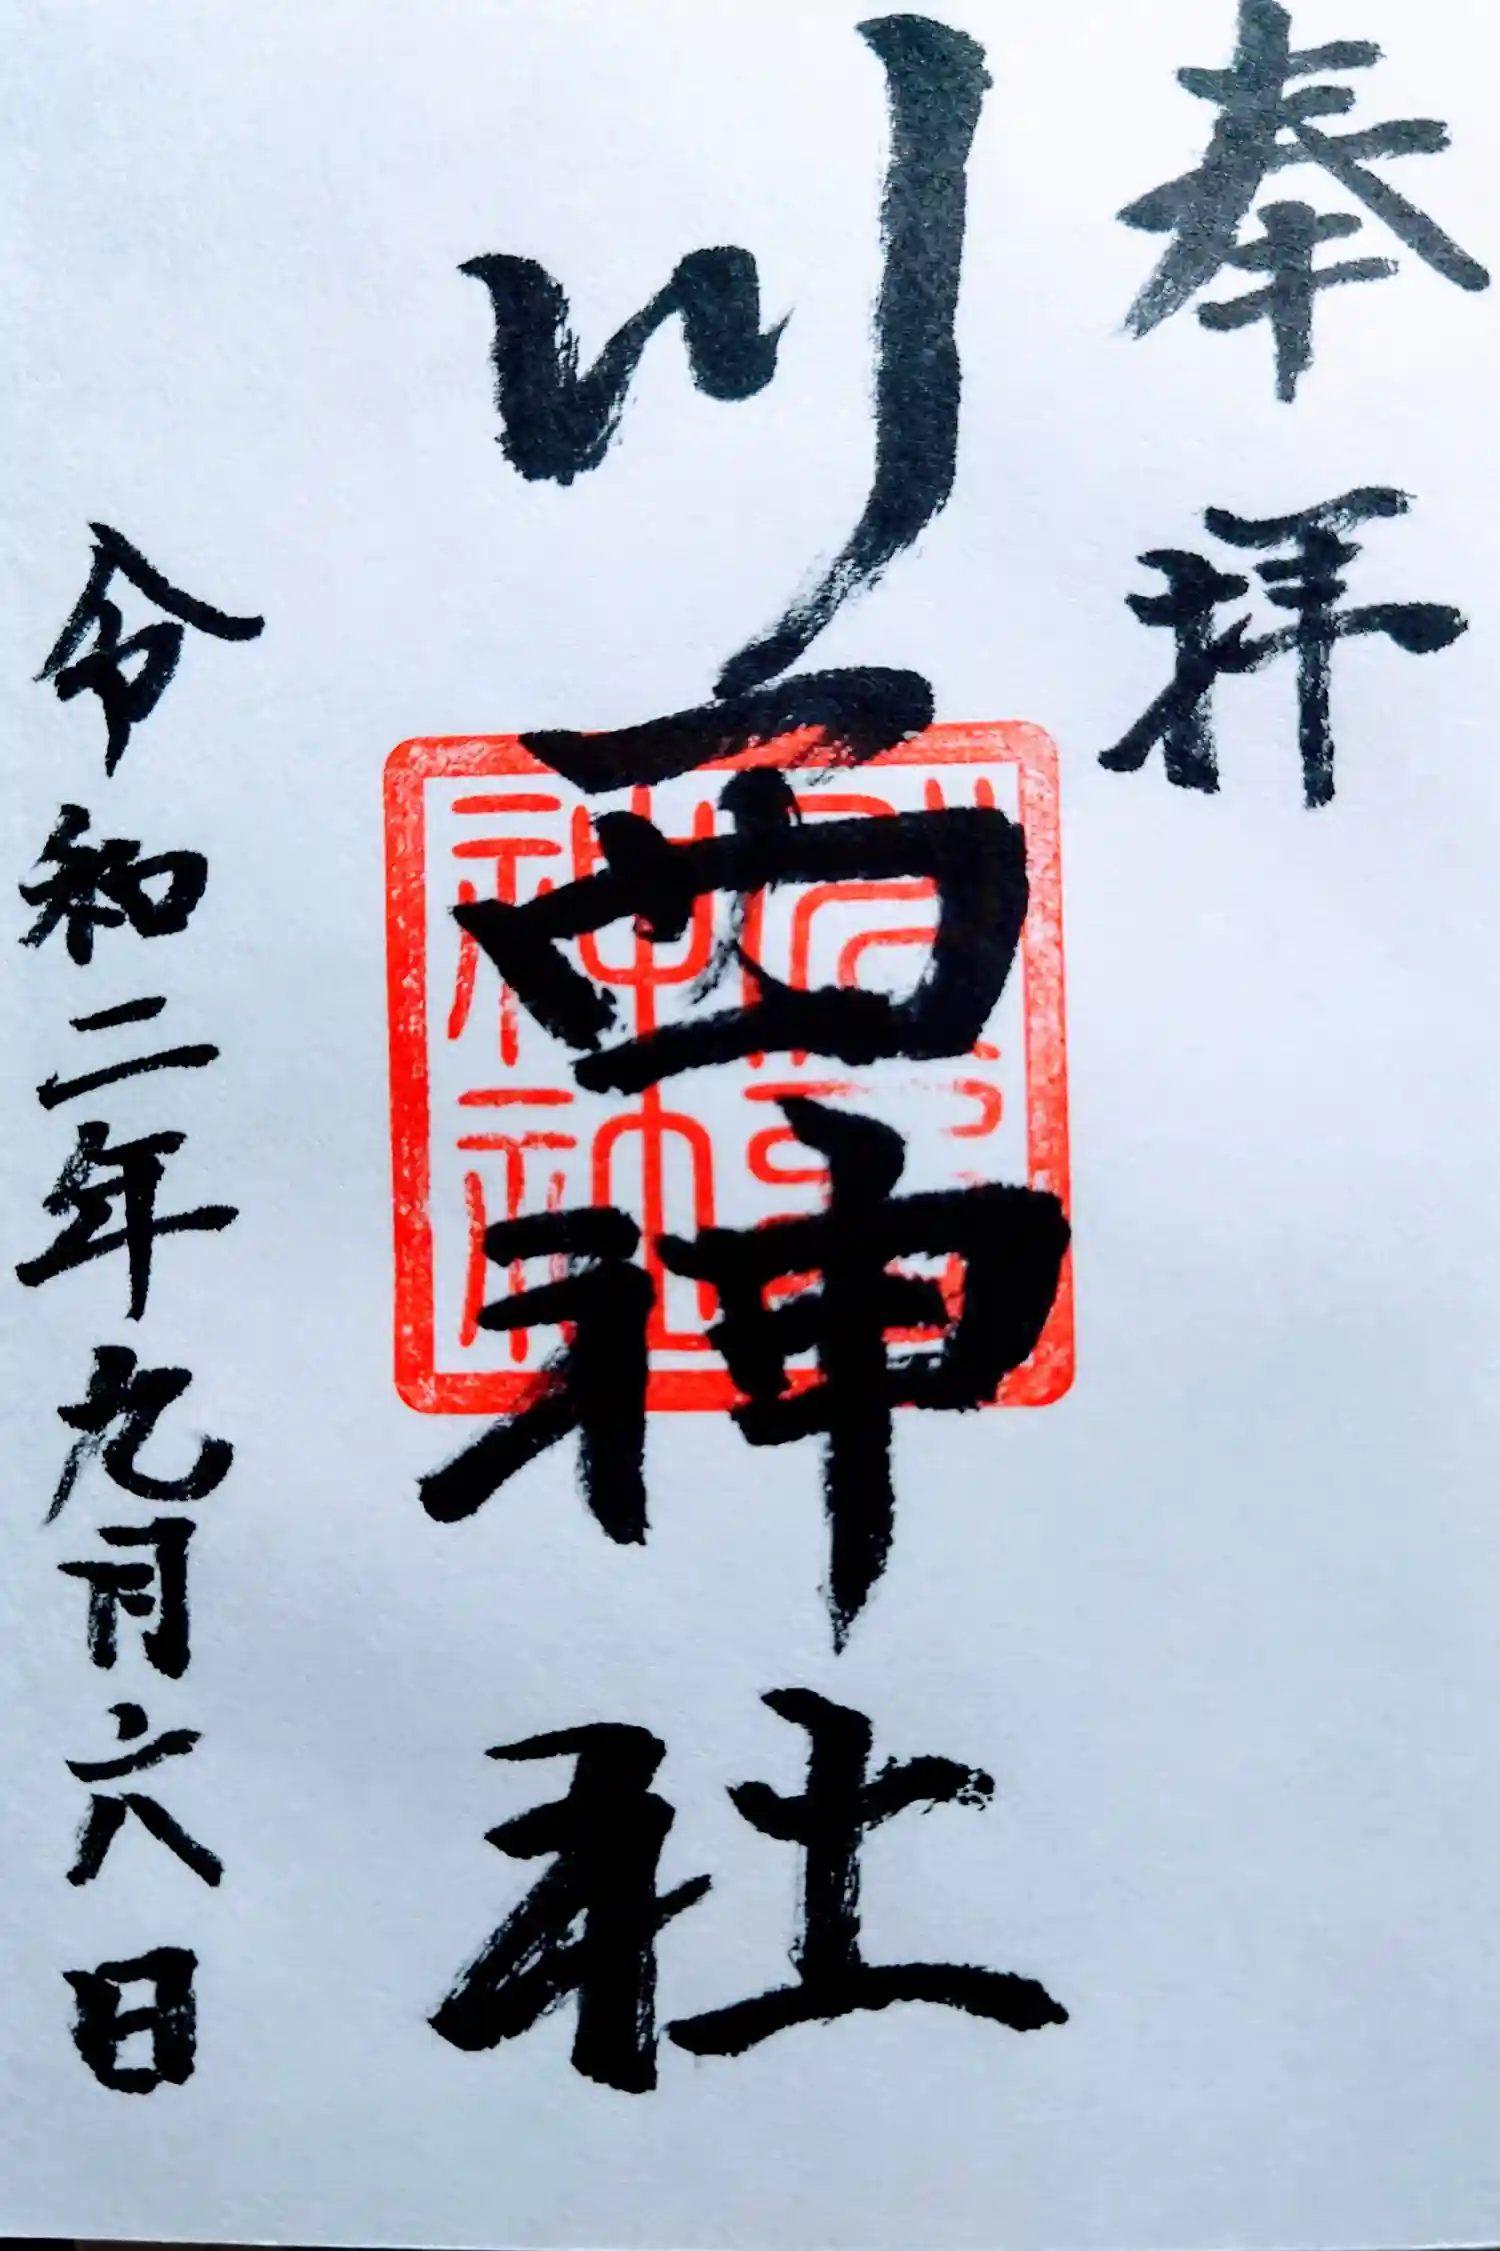 奉拝
川西神社
神社
令和二年九月六日